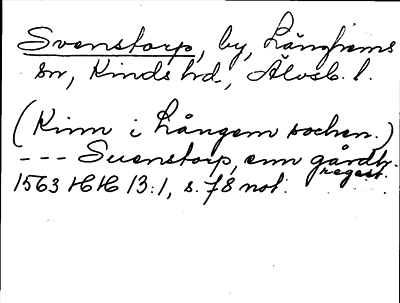 Svenstorp, by, Länghems
sn, Kinds hd, Älvsb. l.
(Kinn i Långem sochen.)
--- Suenstorp, enn gårdtz
regest.
1563 HH 13:1, s. 78 not.